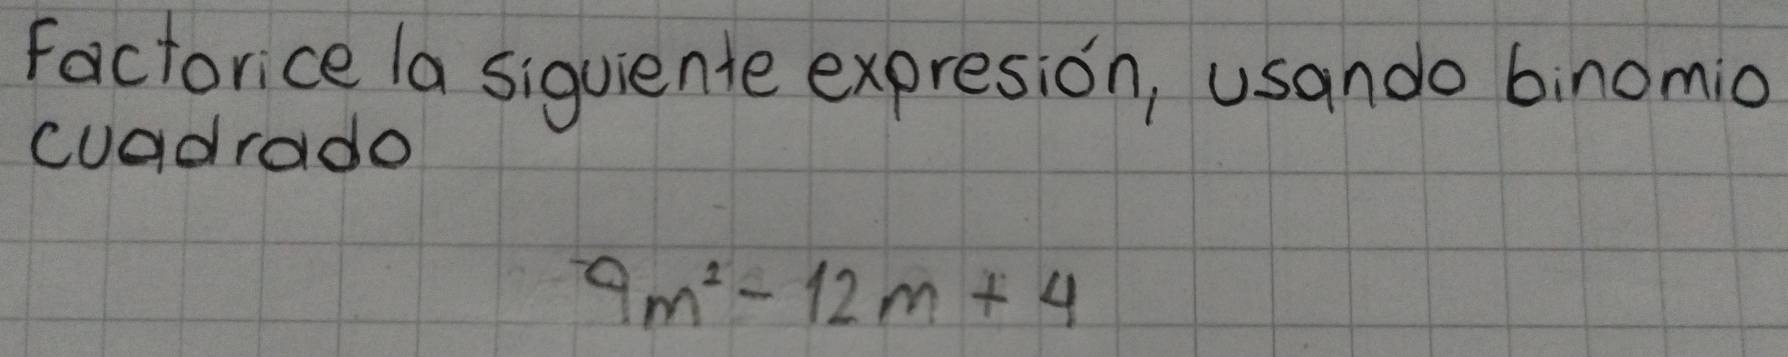 Factorice la siguiente expresión, usando binomio
cuadrado
9m² - 12m + 4